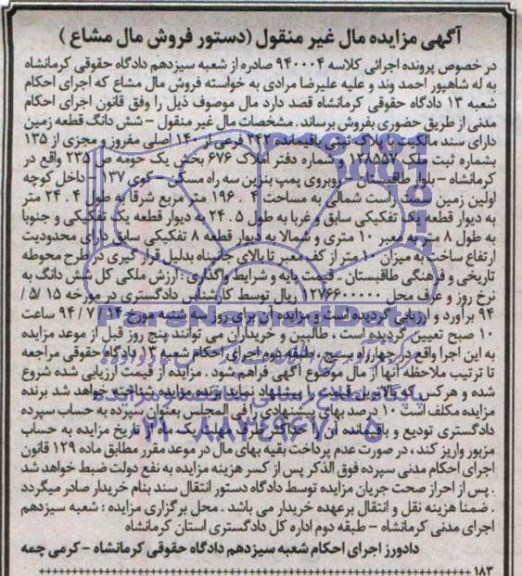 آگهی مزایده مال غیر منقول (دستور فروش مال مشاع)
در خصوص پرونده اجرائی کلاسه ۹۴۰۰۰۴ صادره از شعبه سیزدهم دادگاه حقوقی کرمانشاه
به له شاهپور احمد وند و علیه علیرضا مرادی به خواسته فروش مال مشاع که اجرای احکام
شعبه ۱۳ دادگاه حقوقی کرمانشاه قصد دارد مال موصوف ذیل را وفق قانون اجرای احکام
مدنی از طریق حضوری بفروش برساند. مشخصات مال غیر منقول - شش دانگ قطعه زمین
دارای سند مالکیت با پلاک ثبتی باقیمانده ۲۴۲ فرعی از ۱۴۰ اصلی مفروز و مجزی از ۱۳۵
بشماره ثبت ملک ۱۲۸۵۵۷ و شماره دفتر املاک ۶۷۶ بخش یک حومه ص ۲۳۵ واقع در
کرمانشاه - بلوار طاقبستان - روبروی پمپ بنزین سه راه مسکن - کوی ۱۳۷ - داخل کوچه
اولین زمین سمت راست شمالی به مساحت ۱۹۶.۴ متر مربع شرقا به طول ۲۴.۴ متر
به دیوار قطعه یک تفکیکی سابق و غربا به طول ۲۴.۵ به دیوار قطعه یک تفکیکی و جنوبا
به طول ۸ متر به معبر ۱۰ متری و شمالا به دیوار قطعه ۸ تفکیکی سابق دارای محدودیت
ارتفاع ساخت به میزان ۱۰ متر از کف معبر تا بالای جانپناه بدلیل قرار گیری در طرح محوطه
تاریخی و فرهنگی طاقبستان. قیمت پایه و شرایط واگذاری: ارزش ملکی کل شش دانگ به
نرخ روز و عرف محل ریال توسط کارشناس دادگستری در مورخه ۱۵ /۵/
۹۴ برآورد و ارزیابی گردیده است و مزایده آن برای روز سه شنبه مورخ ۱۴ / ۷ / ۹۴ ساعت
۱۰ صبح تعیین گردیده است، طالبین و خریداران می توانند پنج روز قبل از موعد مزایده
به این اجرا واقع در چهارراه بسیج، طبقه دوم اجرای احکام شعبه ۱۳ دادگاه حقوقی مراجعه
تا ترتیب ملاحظه آنها از مال موضوع آگهی فراهم شود. مزایده از قیمت ارزیابی شده شروع
شده و هر کس که بالاترین قیمت را پیشنهاد نماید برنده مزایده شناخته خواهد شد برنده
مزایده مکلف است ۱۰ درصد بهای پیشنهادی را فی المجلس بعنوان سپرده به حساب سپرده
دادگستری تودیع و باقیمانده آن را حداکثر ظرف مهلت یک ماه از تاریخ مزایده به حساب
مزبور واریز کند، در صورت عدم پرداخت بقیه بهای مال در موعد مقرر مطابق ماده ۱۲۹ قانون
اجرای احکام مدنی سپرده فوق الذکر پس از کسر هزینه مزایده به نفع دولت ضبط خواهد شد
. پس از احراز صحت جریان مزایده توسط دادگاه دستور انتقال سند بنام خریدار صادر میگردد
. ضمنا هزینه نقل و انتقال برعهده خریدار می باشد. محل برگزاری مزایده: شعبه سیزدهم
اجرای مدنی کرمانشاه - طبقه دوم اداره کل دادگستری استان کرمانشاه
دادورز اجرای احکام شعبه سیزدهم دادگاه حقوقی کرمانشاه - کرمی چمه
۱۸۳
ParsNamadData
۰۲۱-۸۸۳۴۹۶۷۰-۵